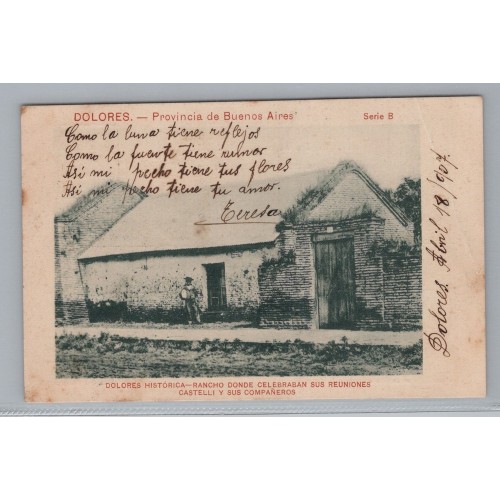 DOLORES. — Provincia de Buenos Aires
Serie B
Como la luna tiene reflejos
Como la fuente tiene rumor
Asi mi pecho tiene tus flores
Asi mi pecho tiene tu amor.
Teresa
Dolores Abril 18/907.
DOLORES HISTÓRICA—RANCHO DONDE CELEBRABAN SUS REUNIONES
CASTELLI Y SUS COMPAÑEROS